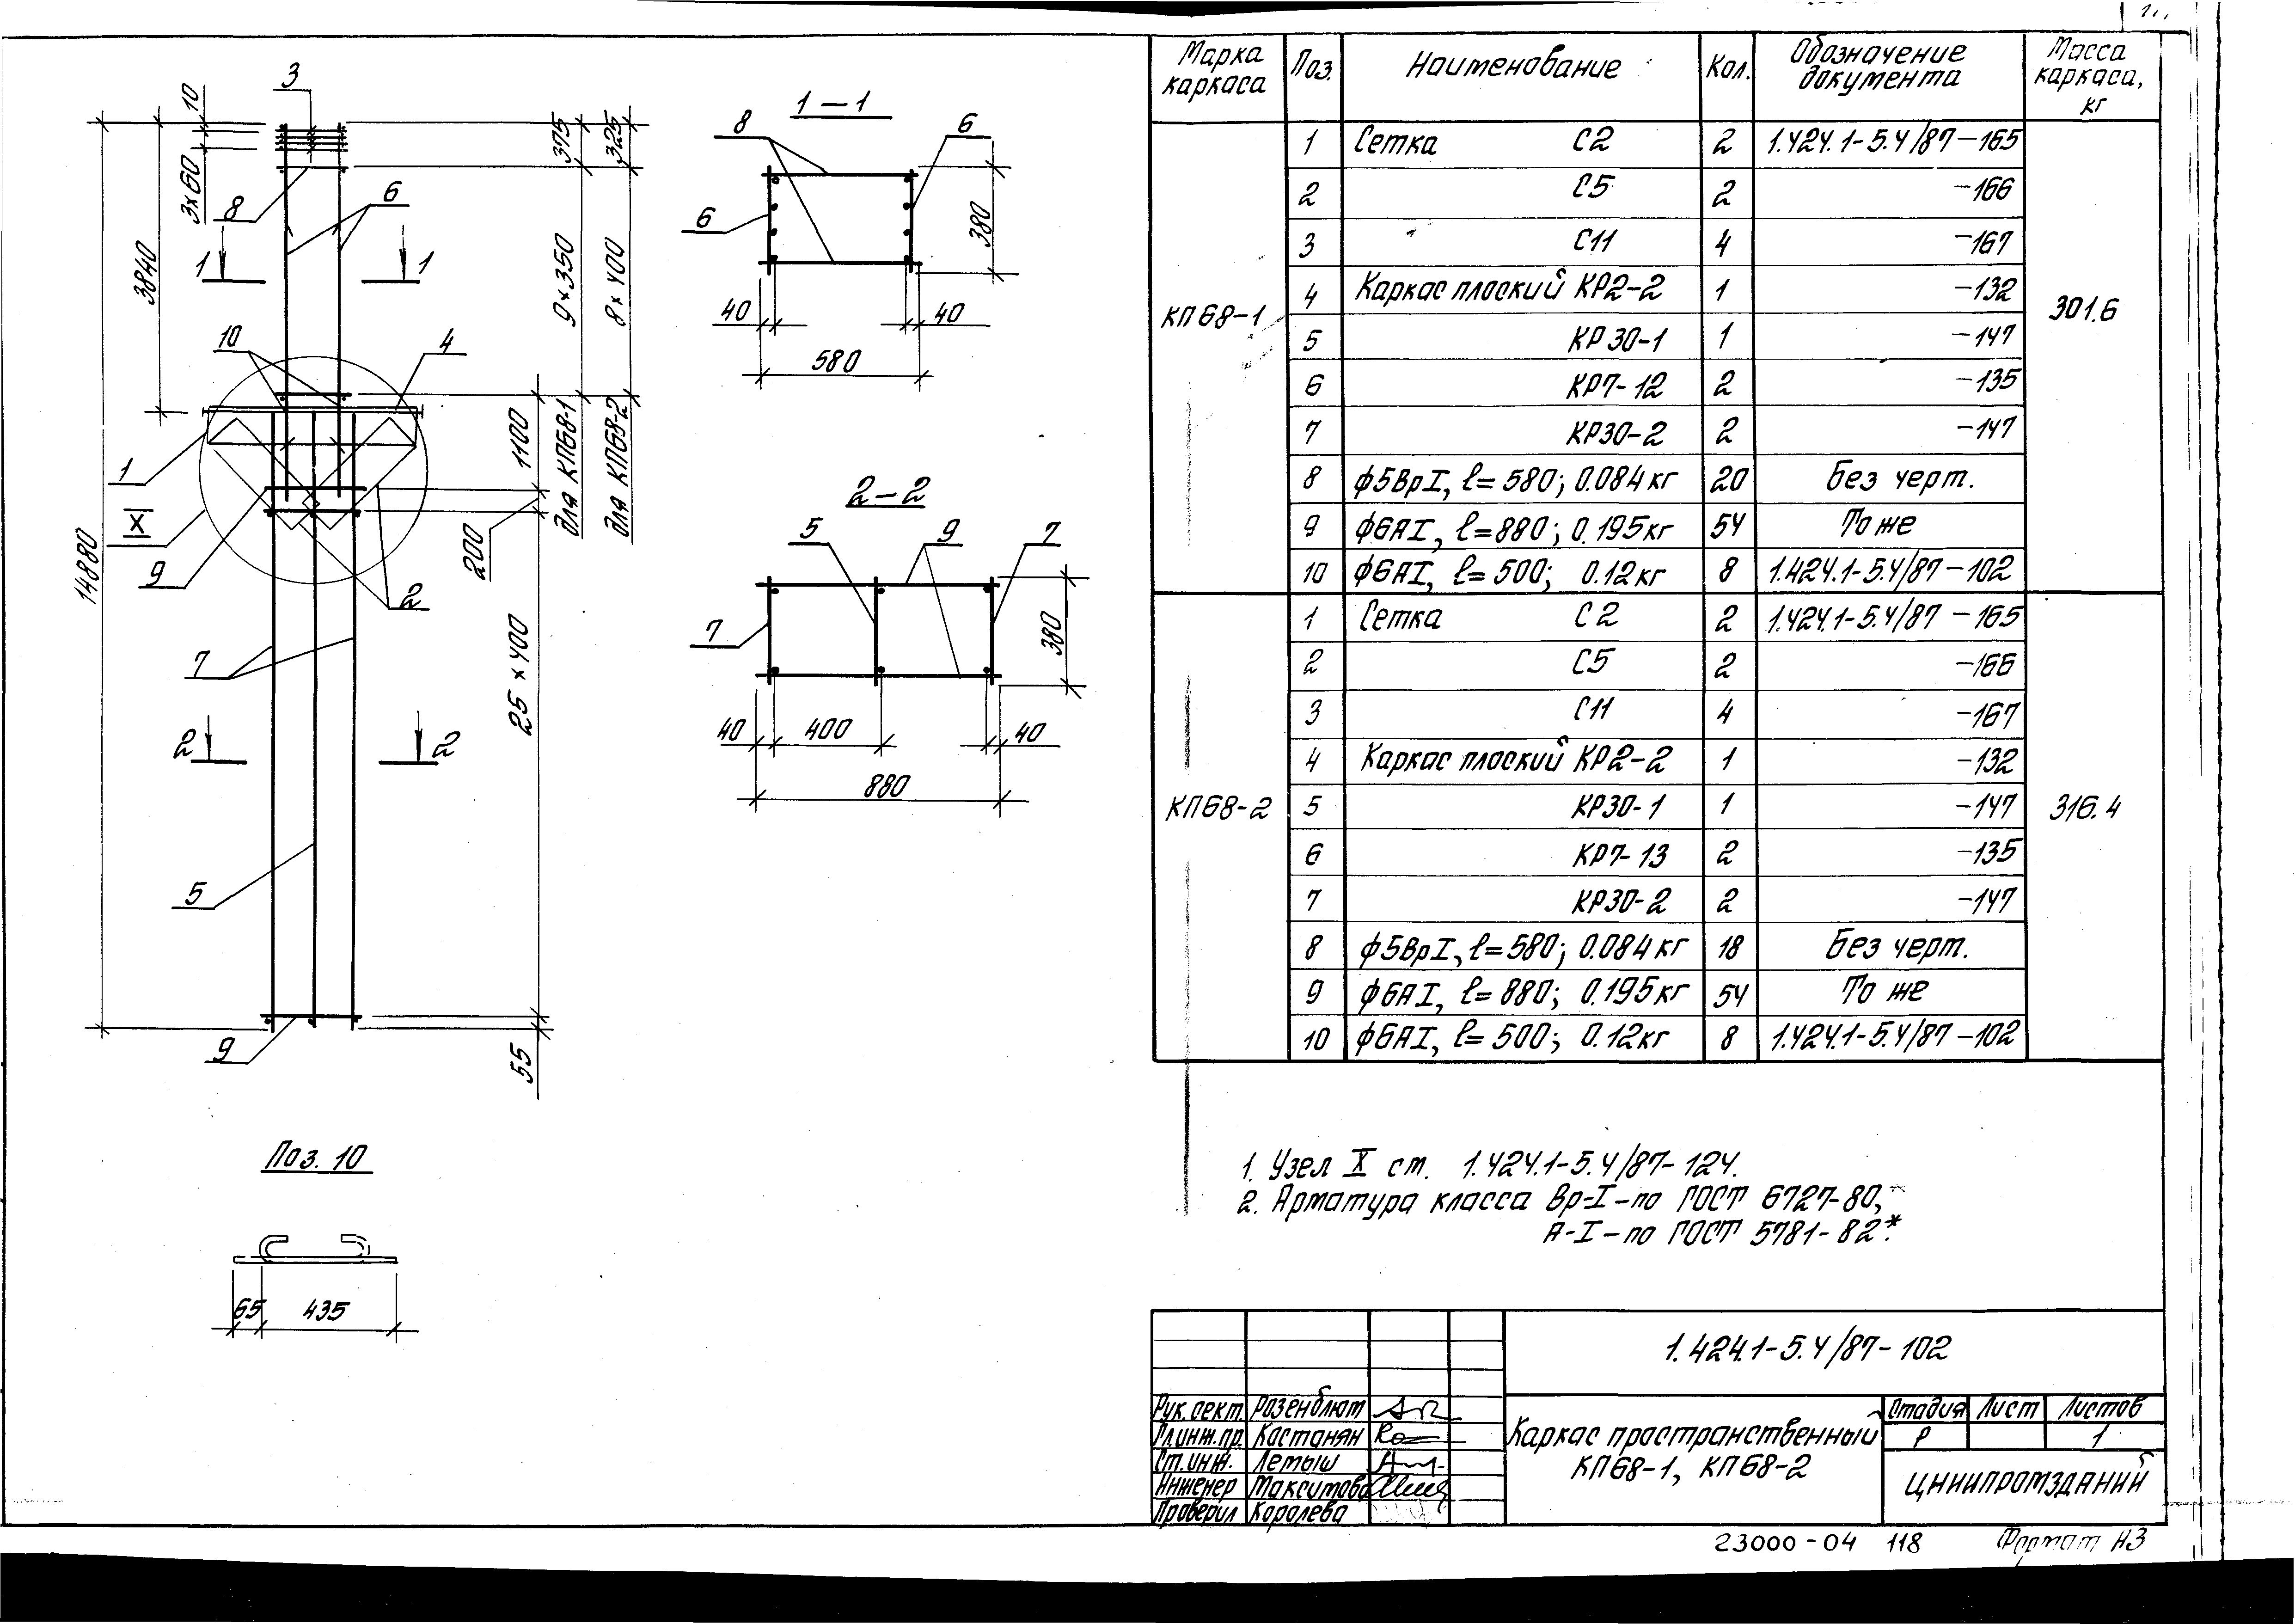 3
10
3×60
8
6
3840
14880
1
1
375
325
9×350
8×400
10
4
1100
для КП68-1
для КП68-2
1
X
9
200
2
7
25×400
2
2
5
9
55
1–1
8
6
6
380
40
40
580
2–2
5
9
7
7
380
40
400
40
880
Поз. 10
65
435
Марка каркаса Поз. Наименование Кол. Обозначение документа Масса каркаса, кг
КП68-1 301.6
1 Сетка С2 2 1.424.1-5.4/87-165
2 С5 2 -166
3 С11 4 -167
4 Каркас плоский КР2-2 1 -132
5 КР30-1 1 -147
6 КР7-12 2 -135
7 КР30-2 2 -147
8 ф5ВрI, ℓ=580; 0.084кг 20 Без черт.
9 ф6АI, ℓ=880; 0.195кг 54 То же
10 ф6АI, ℓ=500; 0.12кг 8 1.424.1-5.4/87-102
КП68-2 316.4
1 Сетка С2 2 1.424.1-5.4/87-165
2 С5 2 -166
3 С11 4 -167
4 Каркас плоский КР2-2 1 -132
5 КР30-1 1 -147
6 КР7-13 2 -135
7 КР30-2 2 -147
8 ф5ВрI, ℓ=580; 0.084кг 18 Без черт.
9 ф6АI, ℓ=880; 0.195кг 54 То же
10 ф6АI, ℓ=500; 0.12кг 8 1.424.1-5.4/87-102
1. Узел X см. 1.424.1-5.4/87-124.
2. Арматура класса Вр-I-по ГОСТ 6727-80,
А-I-по ГОСТ 5781-82*.
1.424.1-5.4/87-102
Рук. сект. Розенблюм
Гл.инж.пр. Кастанян
Ст.инж. Летыш
Инженер Максимова
Проверил Королева
Каркас пространственный
КП68-1, КП68-2
Стадия Лист Листов
Р 1
ЦНИИПРОМЗДАНИЙ
23000-04 118 Формат А3